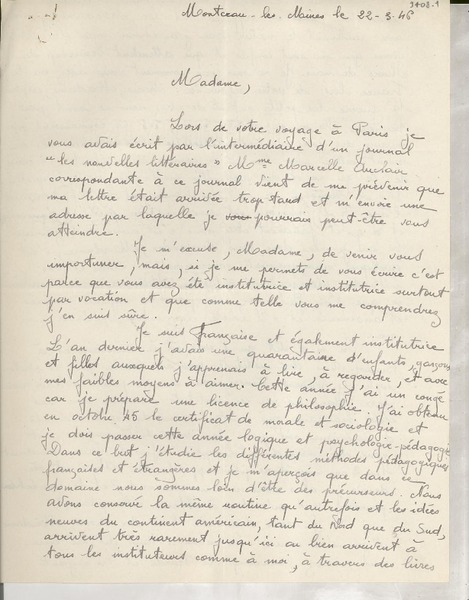 3408.1
Montceau-les-Mines le 22-3-46
Madame,
Lors de votre voyage à Paris je
vous avais écrit par l'intermédiaire d'un journal
"les nouvelles littéraires" Mme Marcelle Auclair
correspondante à ce journal vient de me prévenir que
ma lettre était arrivée trop tard et m'envoie une
adresse par laquelle je pourrais peut-être vous
atteindre.
Je m'excuse, Madame, de venir vous
importuner, mais, si je me permets de vous écrire c'est
parce que vous avez été institutrice et institutrice surtout
par vocation et que comme telle vous me comprendrez
j'en suis sûre.
Je suis Française et également institutrice
L'an dernier j'avais une quarantaine d'enfants, garçons
et filles auxquels j'apprenais à lire, à regarder, et avec
mes faibles moyens à aimer. Cette année j'ai un congé
car je prépare une licence de philosophie. J'ai obtenu
en octobre 45 le certificat de morale et sociologie et
je dois passer cette année logique et psychologie-pédagogie
Dans ce but j'étudie les différentes méthodes pédagogiques
françaises et étrangères et je m'aperçois que dans ce
domaine nous sommes loin d'être des précurseurs. Nous
avons conservé la même routine qu'autrefois et les idées
neuves du continent américain, tant du Nord que du Sud,
arrivent très rarement jusqu'ici ou bien arrivent à
tous les instituteurs comme à moi, à travers des livres